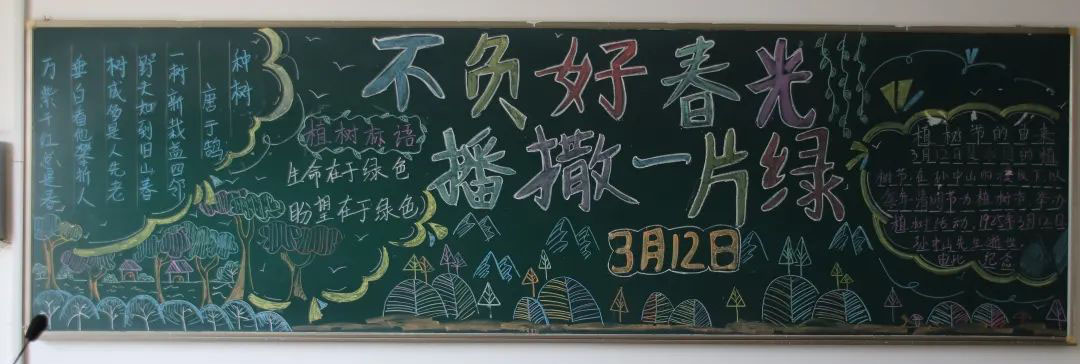 不负好春光
播撒一片绿
3月12日
种树
唐于鹄
一树新栽益四邻
野夫如到旧山春
树成多是人先老
垂白看他攀折人
万紫千红总是春
植树标语
生命在于绿色
盼望在于绿色
植树节的由来
3月12日是 的植
树节,在孙中山的 下,以
清明节为植树节,举办
植树活动,1925年3月12日
孙中山先生逝世,
由此 纪念